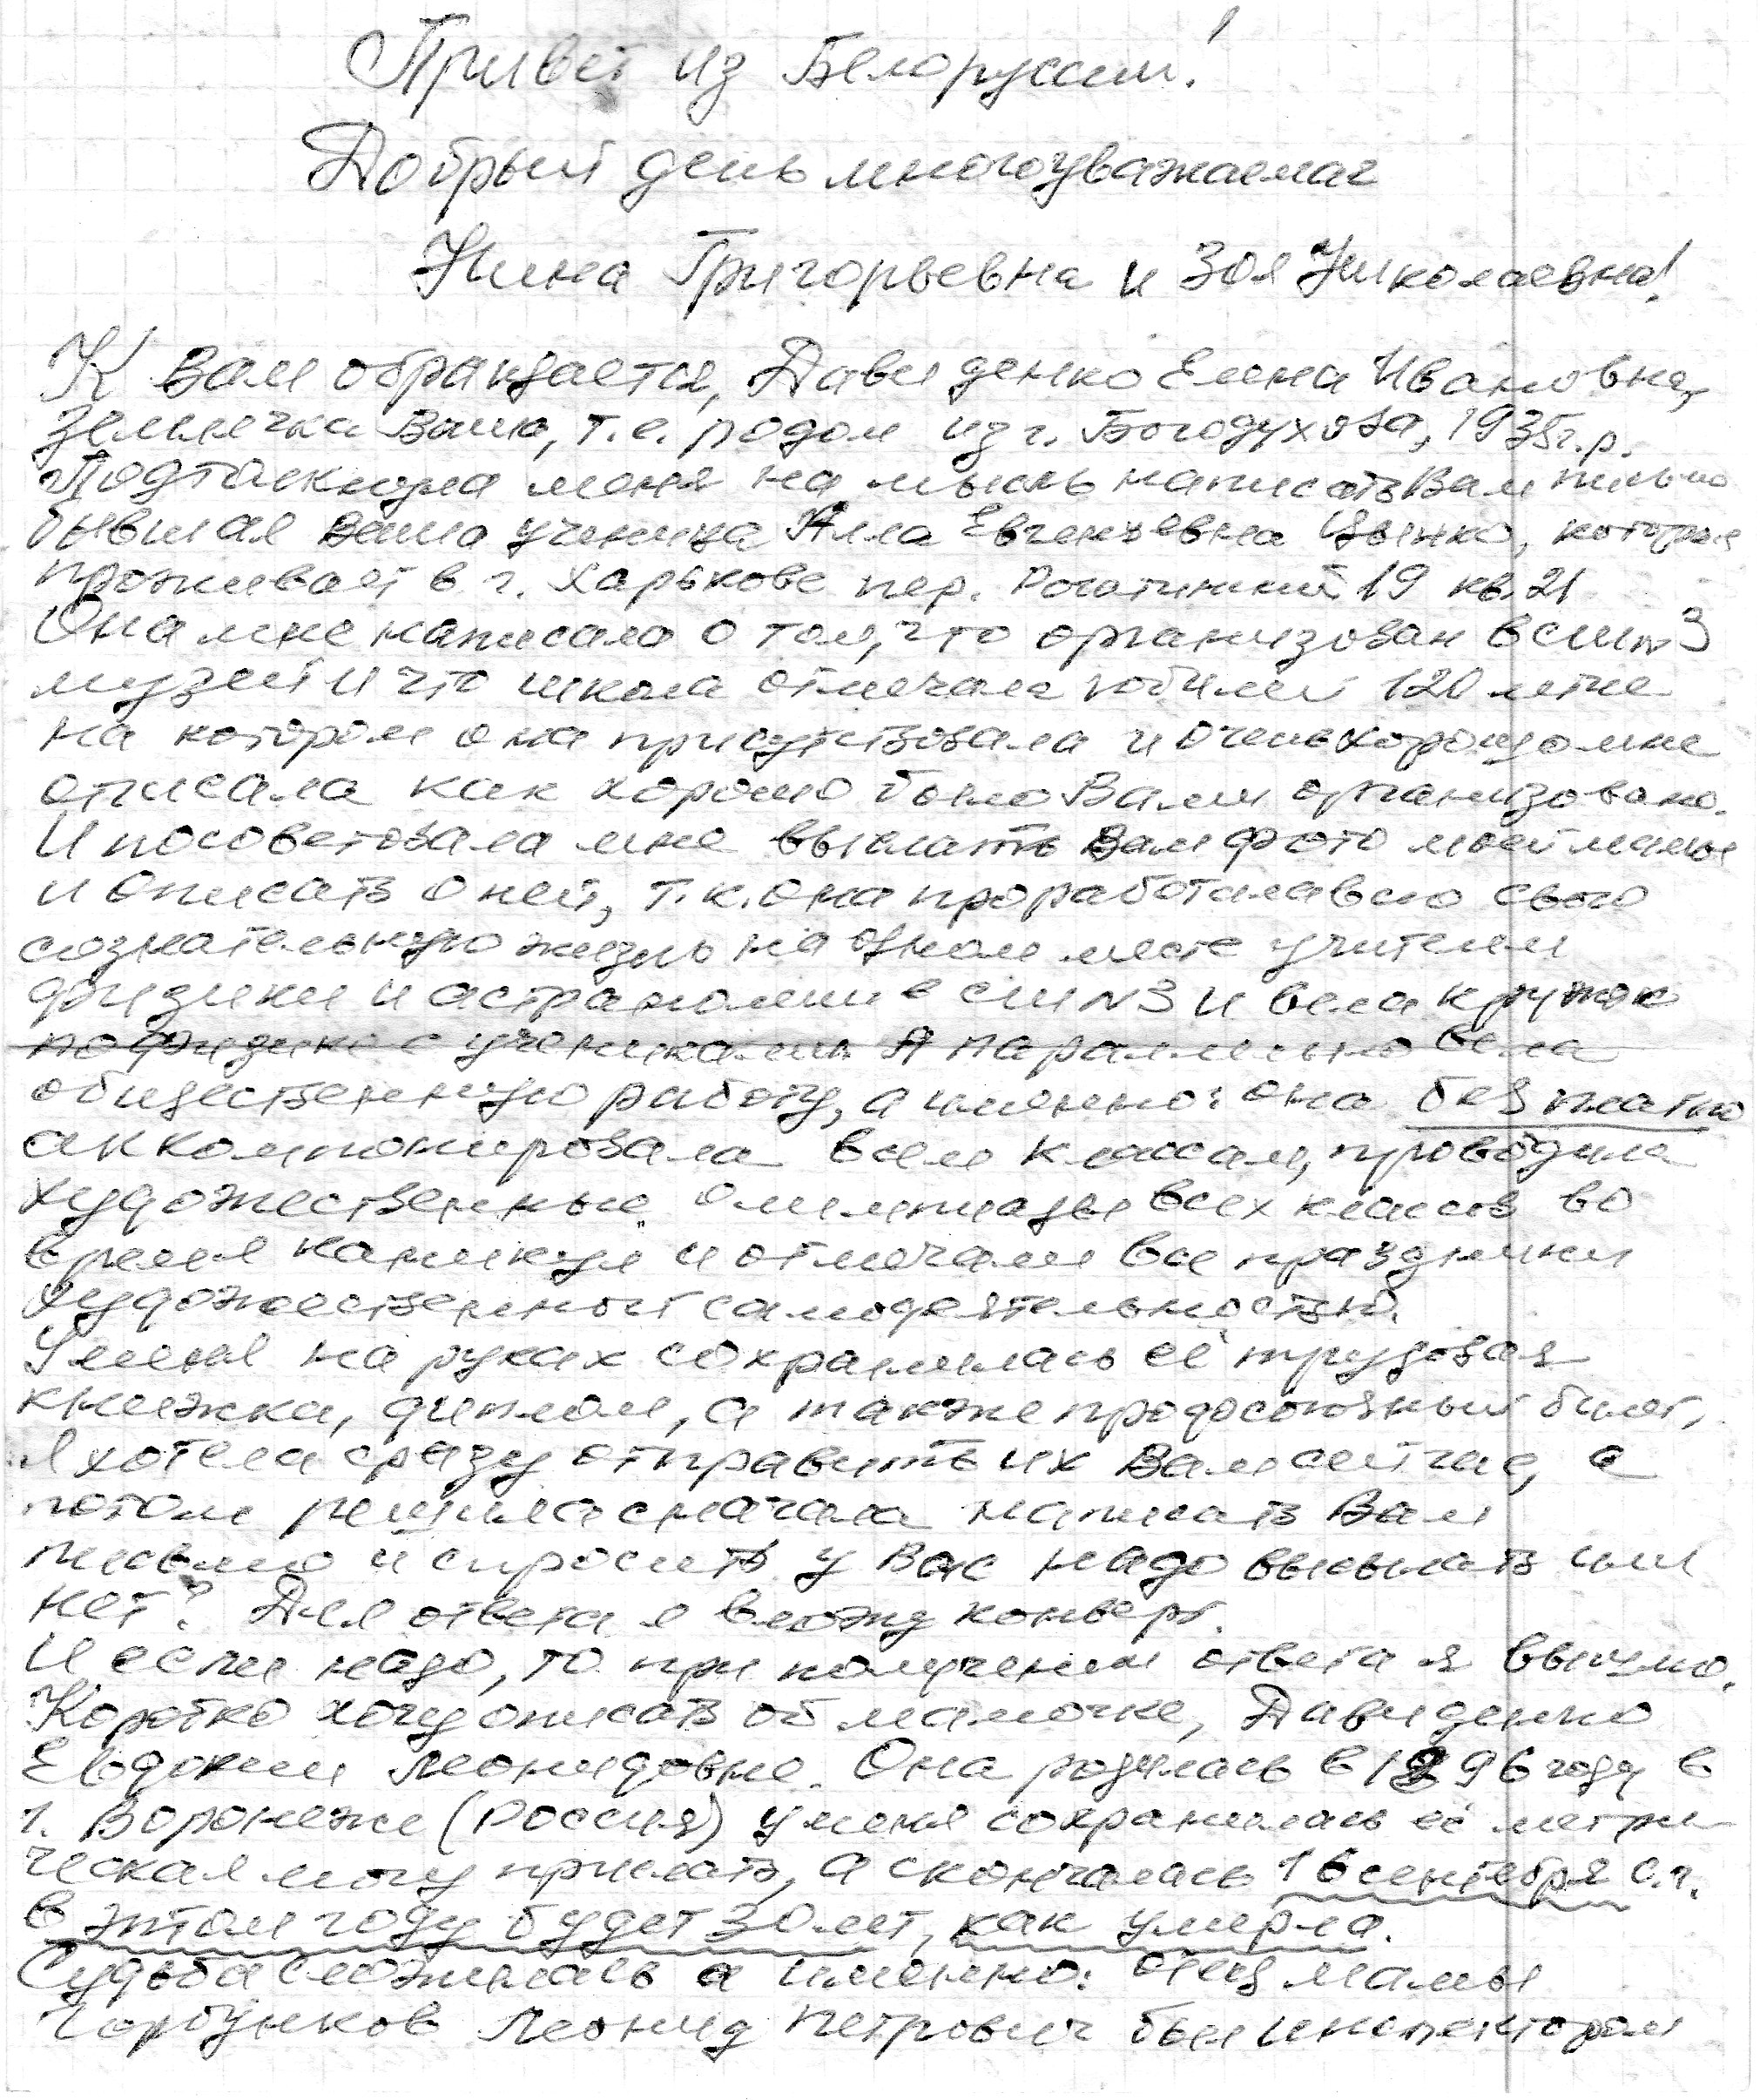 Привет из Белоруссии!
Добрый день многоуважаемая
Нина Григорьевна и Зоя Николаевна!
К Вам обращается, Давиденко Елена Ивановна,
землячка Ваша, т.е. родом из г. Богодухова, 1935г.р.
Подтолкнула меня на мысль написать Вам письмо
бывшая Ваша ученица Алла Евгеньевна которая
проживает в г. Харькове пер. Рогатинский 19 кв. 21
Она мне написала о том, что организован в СШ№3
музей и что школа отмечала юбилей 120 летие
на котором она присутствовала и очень хорошо мне
описала как хорошо было Вами организовано.
И посоветовала мне выслать Вам фото моей мамы
и описать о ней, т.к. она проработала всю свою
сознательную жизнь на одном месте учителем
физики и астрономии в СШ№3 и вела кружок
по физике с учениками. А параллельно вела
общественную работу, а именно: она безплатно
аккомпонировала всем классам, проводила
художественные олимпиады всех классов во
время каникул и отмечали все праздники
художественной самодеятельностью.
У меня на руках сохранилась её трудовая
книжка, диплом, а также профсоюзный билет,
Я хотела сразу отправить их Вам сейчас, а
потом решила сначала написать Вам
письмо и спросить у Вас надо высылать или
нет? Для ответа я вложу конверт.
И если надо, то при получении ответа я вышлю.
Коротко хочу описать об мамочке, Давиденко
Евдокии Леонидовне. Она родилась в 1896 году в
г. Воронеже (Россия) у меня сохранилась её метри-
ческая могу прислать, а скончалась 16 сентября с.г.
в этом году будет 30 лет, как умерла.
Судьба сложилась а именно: отец мамы
Горбунков Леонид Петрович был инспектором